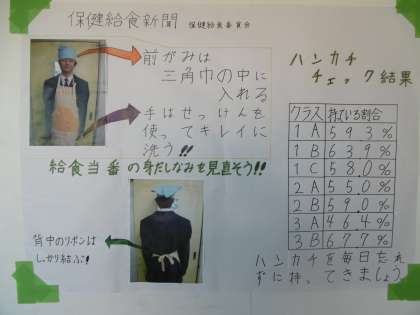 保健給食新聞 保健給食委員会
前がみは
三角巾の中に
入れる
手はせっけんを
使ってキレイに
洗う!!
給食当番の身だしなみを見直そう!!
背中のリボンは
しっかり結ぶ!
ハンカチ
チェック結果
クラス 持ている割合
1A 59.3%
1B 63.9%
1C 58.0%
2A 55.0%
2B 59.0%
3A 46.4%
3B 67.7%
ハンカチを毎日忘れ
ずに持ってきましょう